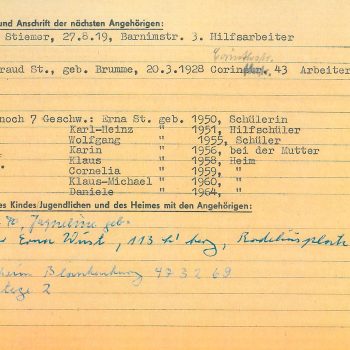 und Anschrift der nächsten Angehörigen:
Stiemer, 27.8.19, Barnimstr. 3. Hilfsarbeiter
Corinthstr.
raud St., geb. Brumme, 20.3.1928 Corin 43 Arbeiter
noch 7 Geschw.: Erna St. geb. 1950, Schülerin
Karl-Heinz " 1951, Hilfschüler
Wolfgang " 1955, Schüler
Karin " 1956, bei der Mutter
Klaus " 1958, Heim
Cornelia " 1959, "
Klaus-Michael " 1960, "
Daniele " 1964, "
es Kindes/Jugendlichen und des Heimes mit den Angehörigen:
geb.
Ernst Wüst, 113
heim Blankenburg 47 32 69
2